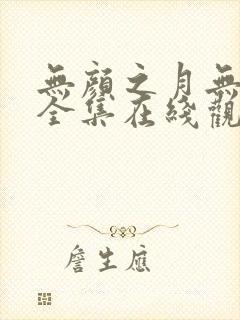 無顏之月無
全集在綫觀
詹生應